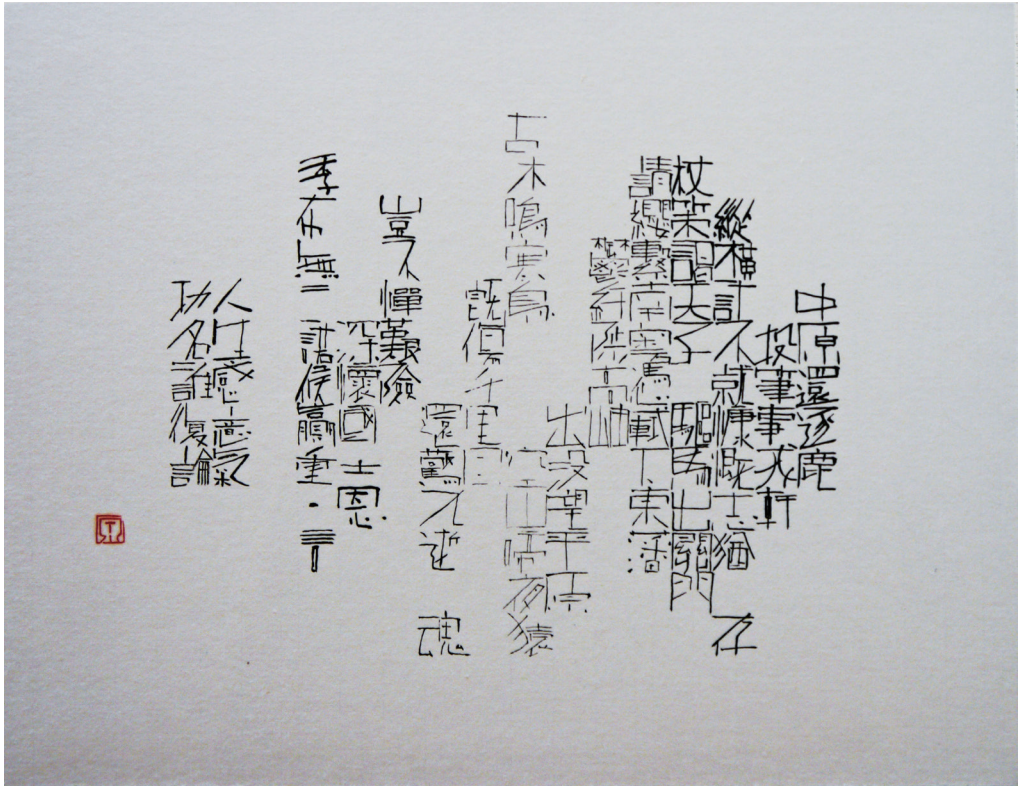 中原還逐鹿
投筆事戎軒
縱橫計不就慷慨志猶存
杖策謁天子驅馬出關門
請纓繫南粵馮軾下東藩
鬱紆陟高岫
出沒望平原
古木鳴寒鳥空山啼夜猿
既傷千里目
還驚九逝魂
豈不憚艱險
深懷國士恩
季布無二諾侯嬴重一言
人生感意氣
功名誰復論